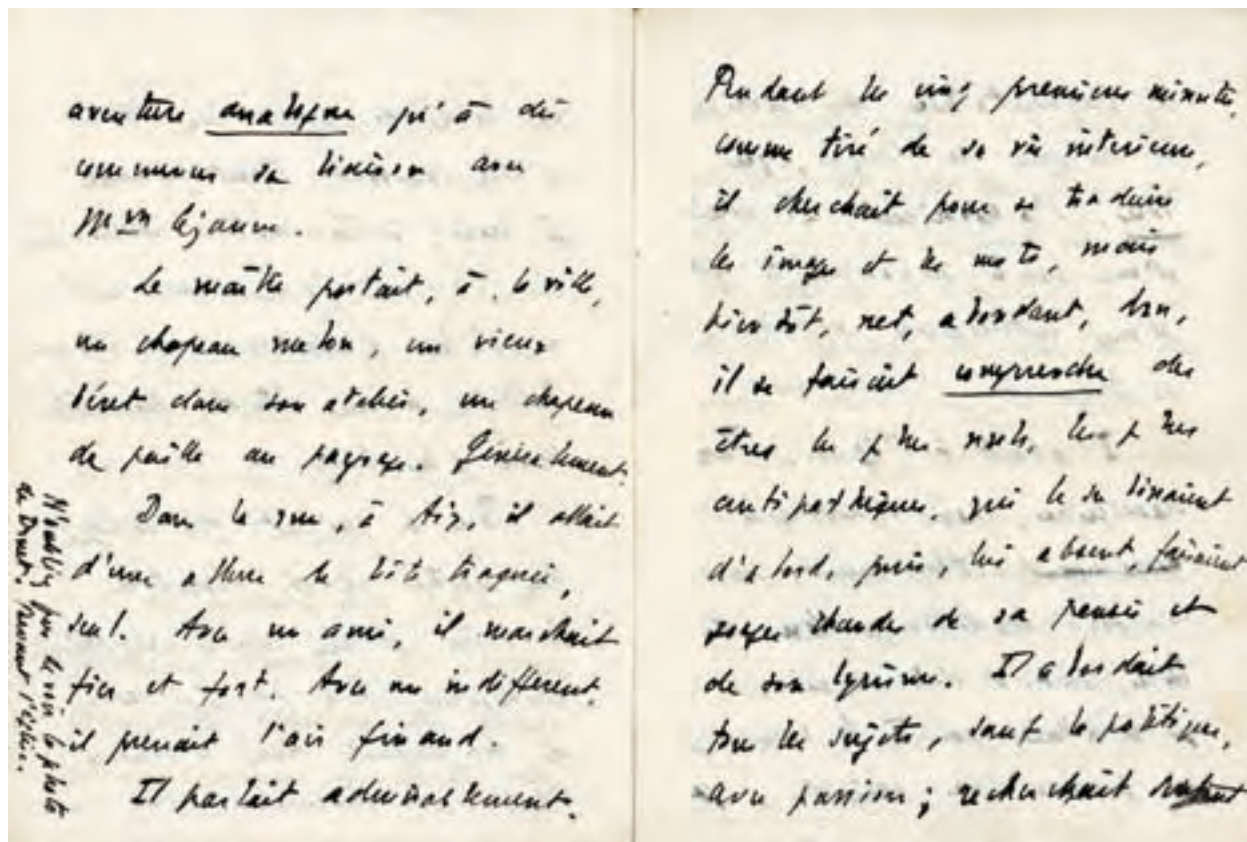 aventure analogue qu'a dû
commencer sa liaison avec
Mme Lejeune.
Le maître portait, à la ville,
un chapeau melon, un vieux
béret dans son atelier, un chapeau
de paille au paysage. Généralement.
Dans la rue, à Aix, il allait
d'une allure de bête traquée,
seul. Avec un ami, il marchait
fier et fort. Avec un indifférent,
il prenait l'air finaud.
Il parlait admirablement.
N'oubliez pas de voir la photo
de Druet. devant l'église.
Pendant les cinq premières minutes,
comme tiré de sa vie intérieure,
il cherchait pour se traduire
les images et les mots, mais
bientôt, net, abondant, bon,
il se faisait comprendre des
êtres les plus rivels, les plus
antipathiques, qui le
d'abord, puis, lui absent, faisaient
gorges chaudes de sa pensée et
de son lyrisme. Il abordait
tous les sujets, sauf la politique,
avec passion ; recherchait surtout